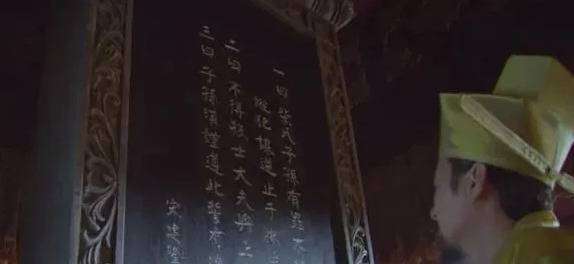 一曰柴氏子孫有罪不
縱犯謀逆止于
二曰不得殺士大夫與上
三曰子孫須謹遵此誓有渝
宋建隆